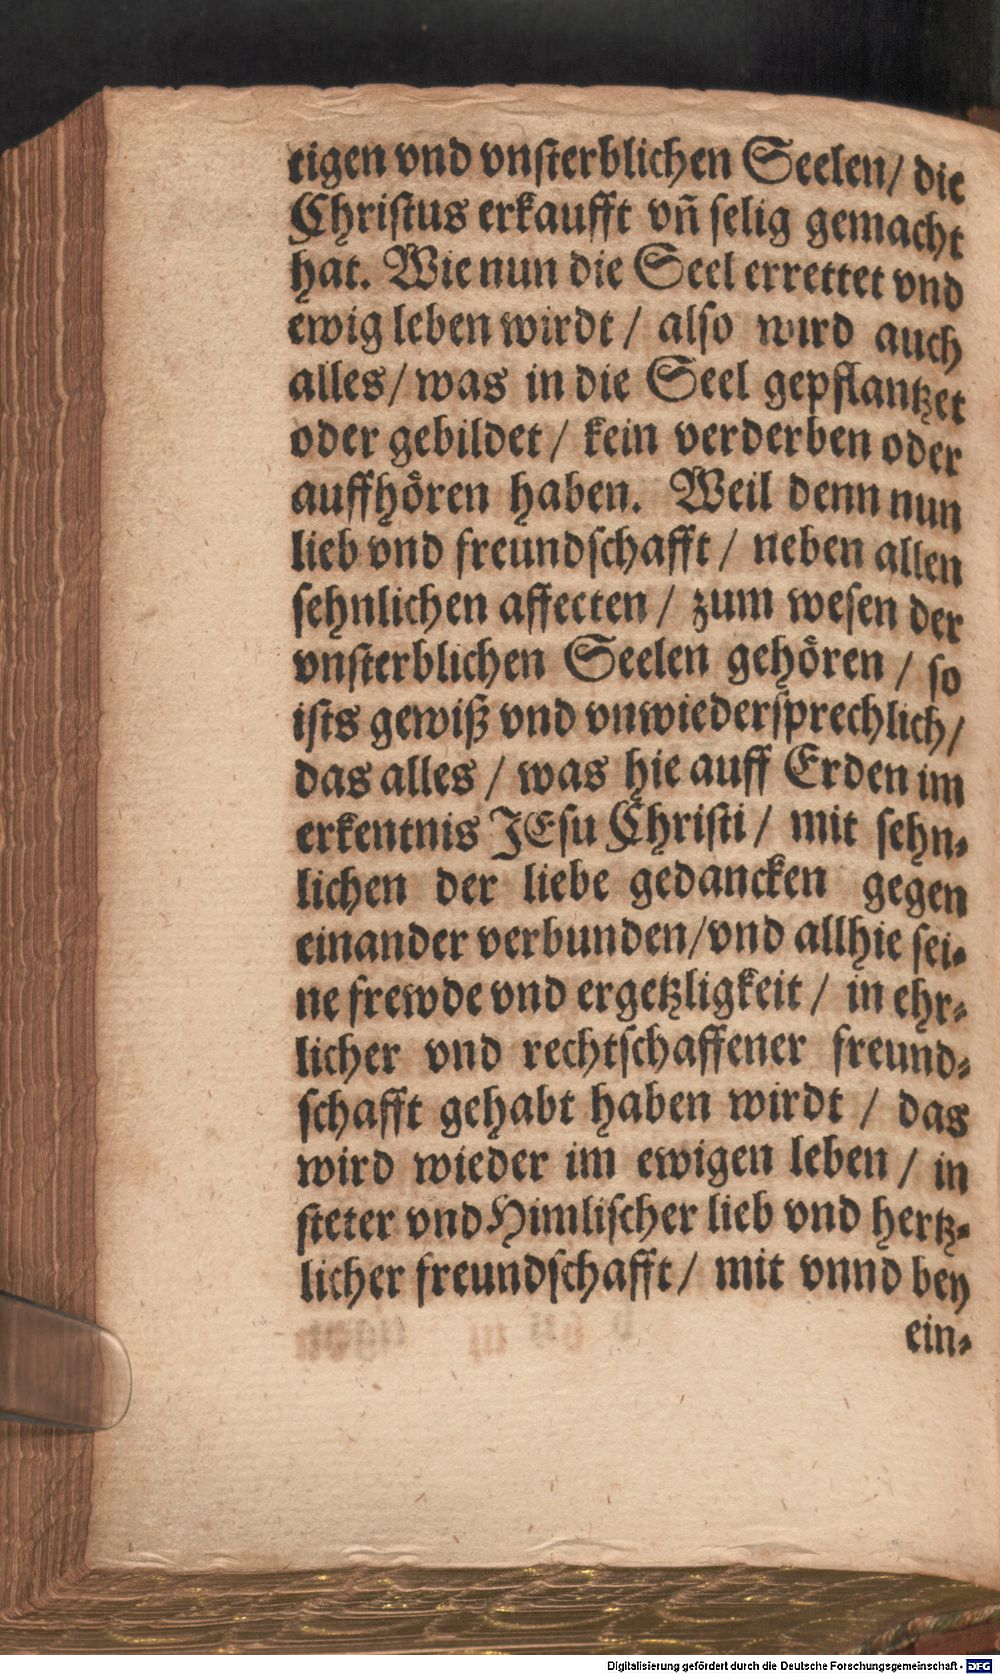 eigen vnd vnsterblichen Seelen/ die
Christus erkaufft vñ selig gemacht
hat. Wie nun die Seel errettet vnd
ewig leben wirdt / also wird auch
alles/ was in die Seel gepflantzet
oder gebildet / kein verderben oder
auffhören haben. Weil denn nun
lieb vnd freundschafft / neben allen
sehnlichen affecten / zum wesen der
vnsterblichen Seelen gehören / so
ists gewiß vnd vnwiedersprechlich/
das alles / was hie auff Erden im
erkentnis JEsu Christi / mit sehn-
lichen der liebe gedancken gegen
einander verbunden/vnd allhie sei-
ne frewde vnd ergetzligkeit / in ehr-
licher vnd rechtschaffener freund-
schafft gehabt haben wirdt / das
wird wieder im ewigen leben / in
steter vnd Himlischer lieb vnd hertz-
licher freundschafft/ mit vnnd bey
ein-
Digitalisierung gefördert durch die Deutsche Forschungsgemeinschaft - DFG